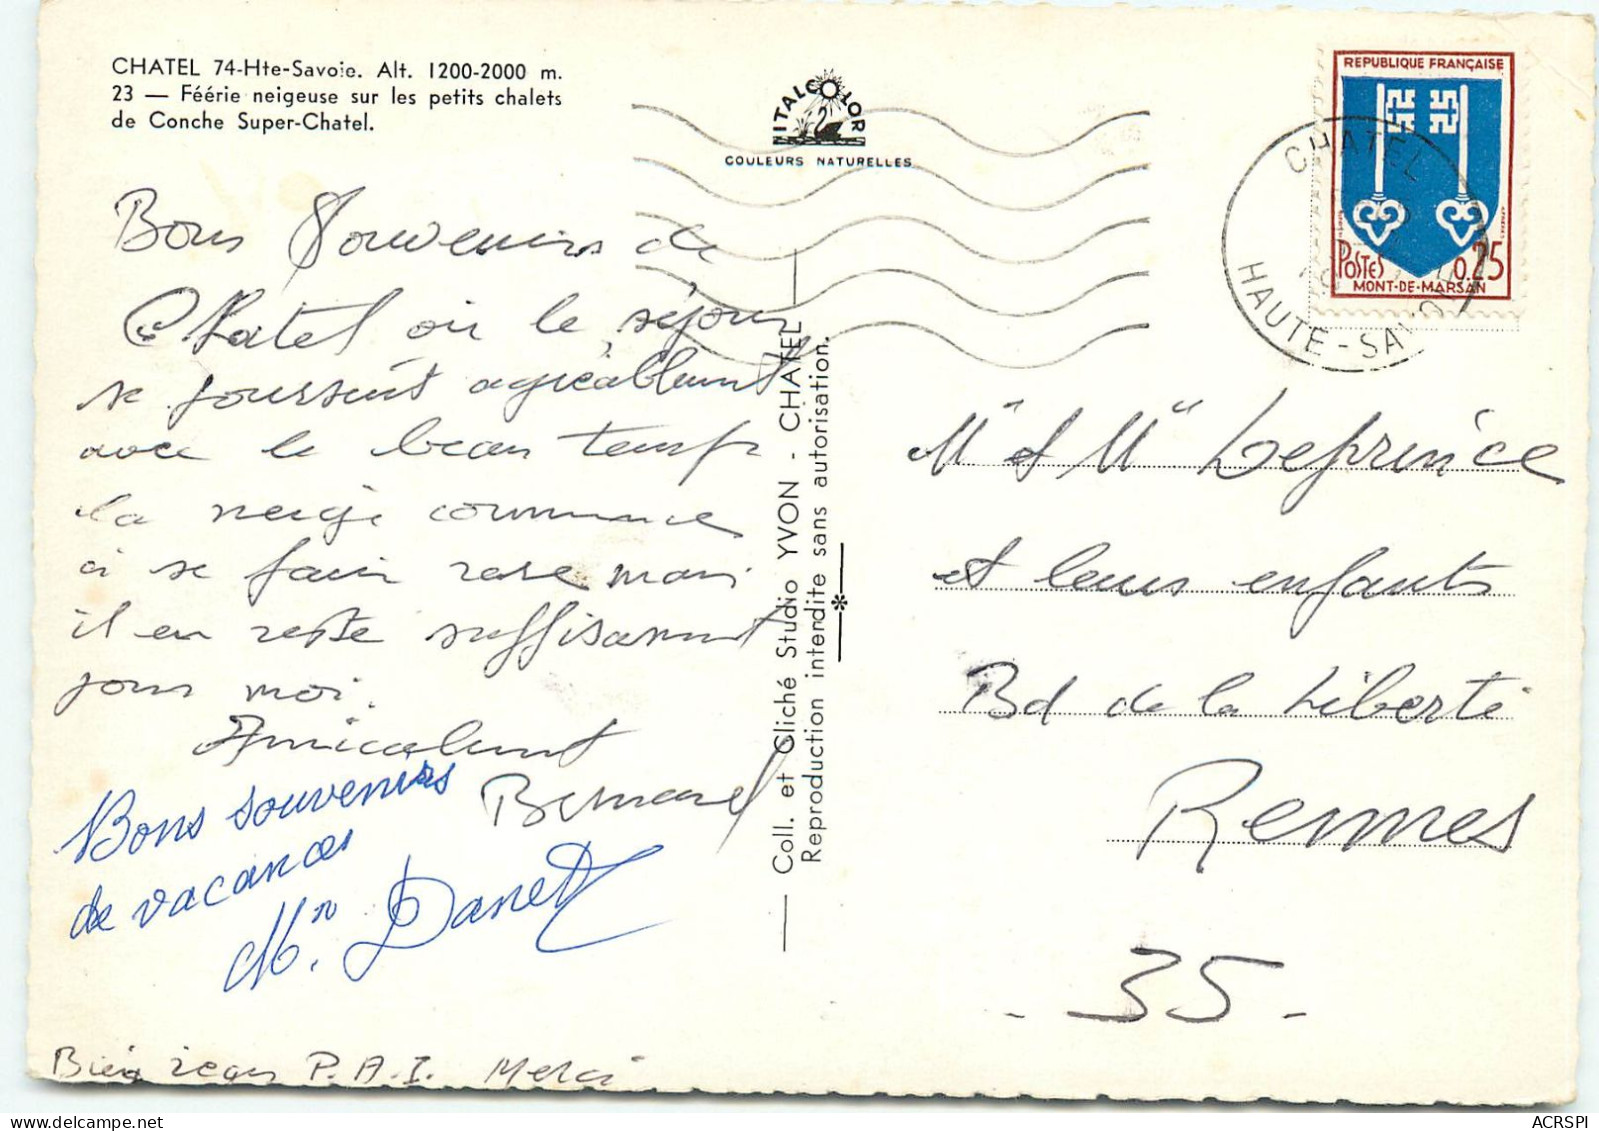 CHATEL 74-Hte-Savoie. Alt. 1200-2000 m.
23 — Féérie neigeuse sur les petits chalets
de Conche Super-Chatel.
ITALCOLOR
COULEURS NATURELLES
REPUBLIQUE FRANÇAISE
POSTES 0,25
MONT-DE-MARSAN
CHATEL
HAUTE-SAVOIE
Bons Souvenirs de
Chatel où le séjour
se poursuit agréablement
avec le beau temps
la neige commence
à se faire rare mais
il en reste suffisamment
pour moi.
Amicalement
Bernard
Bons souvenirs
de vacances
M. Danet
Bien reçu P.A.I. Merci
Coll. et Cliché Studio YVON - CHATEL
Reproduction interdite sans autorisation.
Mr et Me Leprince
et leurs enfants
Bd de la Liberté
Rennes
- 35 -
https://www.delcampe.net
ACRSPI